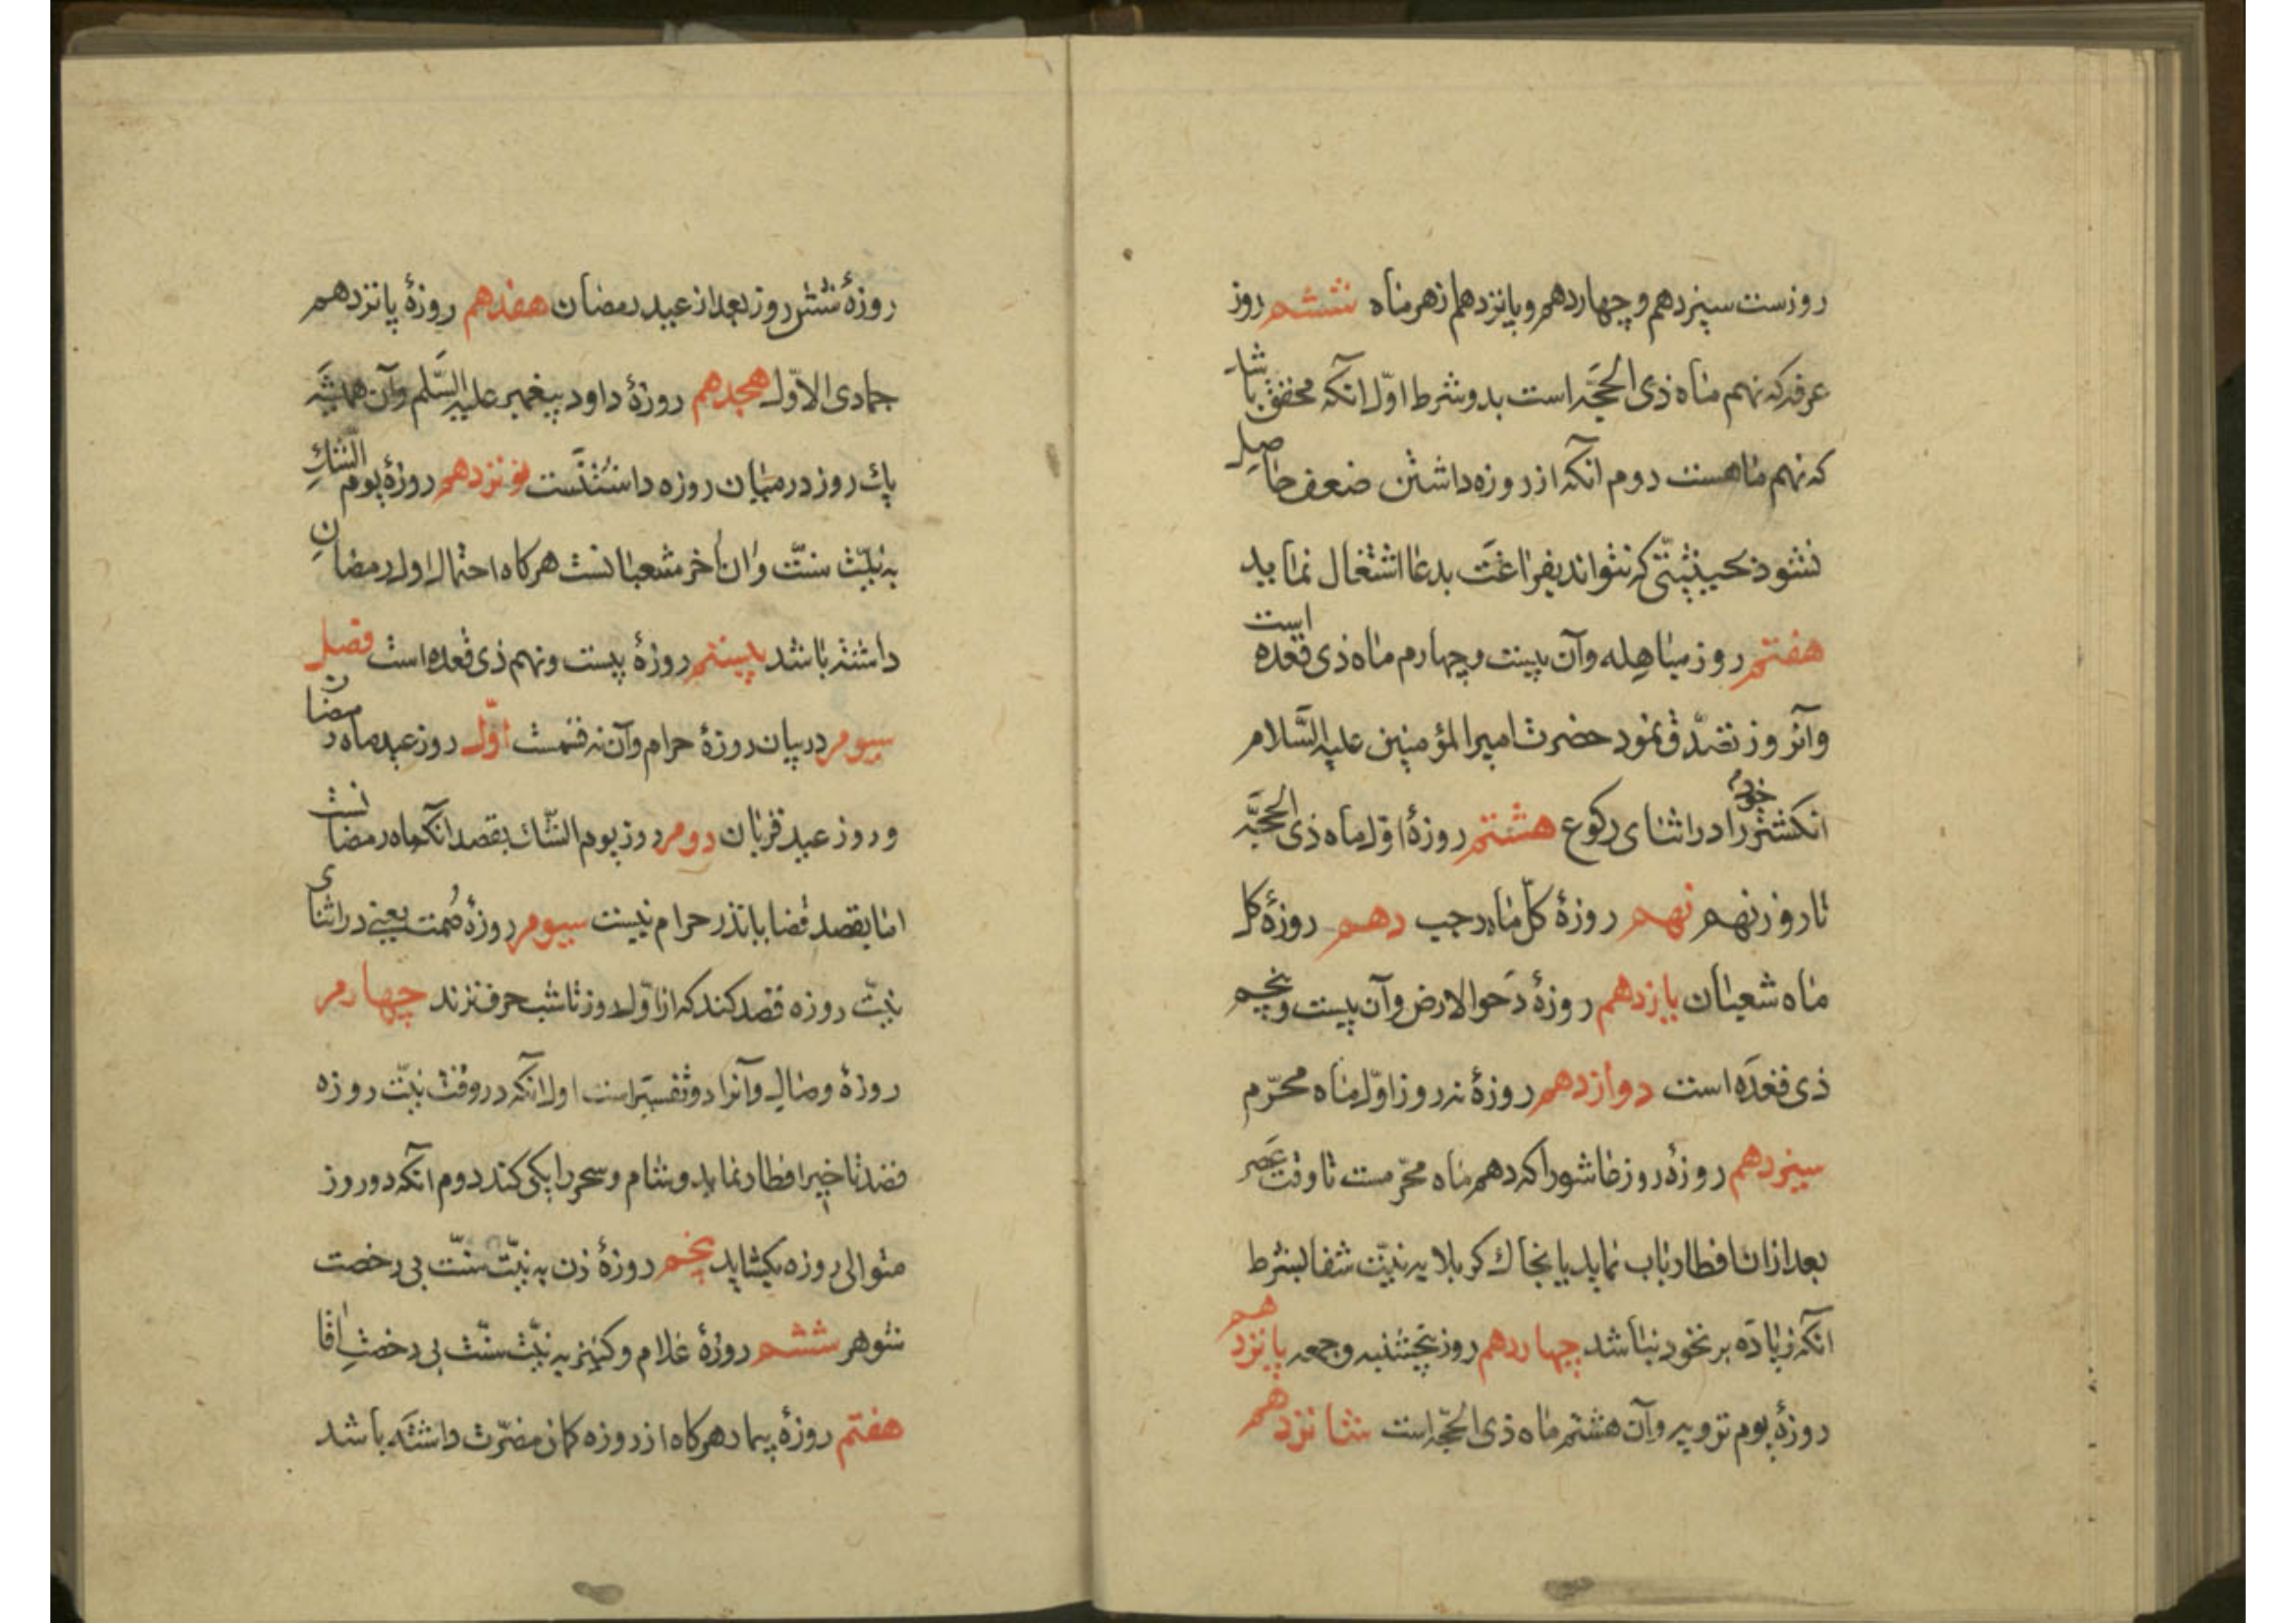 روزست سیزدهم و چهاردهم و پانزدهم از هر ماه ششم روز
عرفه که نهم ماه ذی الحجّه است بدو شرط اوّل انکه محقق باشد
که نهم ماهست دوم آنکه از روزه داشتن ضعف حاصل
نشود بحیثیّتی که نتواند بفراغت بدعا اشتغال نماید
هفتم روز مباهله و آن بیست و چهارم ماه ذی قعده است
و آنروز تصدّق نمود حضرت امیر المؤمنین علیه السّلام
انکشتر خود را در اثنای رکوع هشتم روزهٔ اوّل ماه ذی الحجّه
تا روز نهم نهم روزهٔ کلّ ماه رجب دهم روزهٔ کل
ماه شعبان یازدهم روزهٔ دحو الارض و آن بیست و پنجم
ذی قعده است دوازدهم روزهٔ نه روز اوّل ماه محرّم
سیزدهم روزهٔ روز عاشورا که دهم ماه محرّمست تا وقت عصر
بعد از ان افطار باب نماید یا بخاك کربلا به نیّت شفا بشرط
آنکه زیاده بر نخود نباشد چهاردهم روز پنجشنبه و جمعه پانزدهم
روزهٔ یوم ترویه و آن هشتم ماه ذی الحجّه است شانزدهم
روزهٔ شش روز بعد از عید رمضان هفدهم روزهٔ پانزدهم
جمادی الاوّل هجدهم روزهٔ داود پیغمبر علیه السّلم و آن همیشه
یك روز در میان روزه داشتنست نوزدهم روزهٔ یوم الشّكِ
به نیّت سنّت و ان آخر شعبانست هرکاه احتمال اول رمضان
داشته باشد بیستم روزهٔ بیست و نهم ذی قعده است فصل
سیوم در بیان روزهٔ حرام و آن نه قسمت اوّل روز عید ماه رمضان
و روز عید قربان دوم روز یوم الشّك بقصد آنکه ماه رمضانست
اما بقصد قضا یا نذر حرام نیست سیوم روزهٔ صُمت یعنی در اثنای
نیّت روزه قصد کند که از اوّل روز تا شب حرف نزند چهارم
روزهٔ وصال و آنرا دو تفسیر است اول آنکه در وقت نیّت روزه
قصد تاخیر افطار نماید و شام و سحر را یکی کند دوم آنکه دو روز
متوالی روزه بکشاید پنجم روزهٔ زن به نیّت سنّت بی رخصت
شوهر ششم روزهٔ غلام و کنیز به نیّت سنّت بی رخصتِ آقا
هفتم روزهٔ بیمار هرکاه از روزه کمان مضرّت داشته باشد